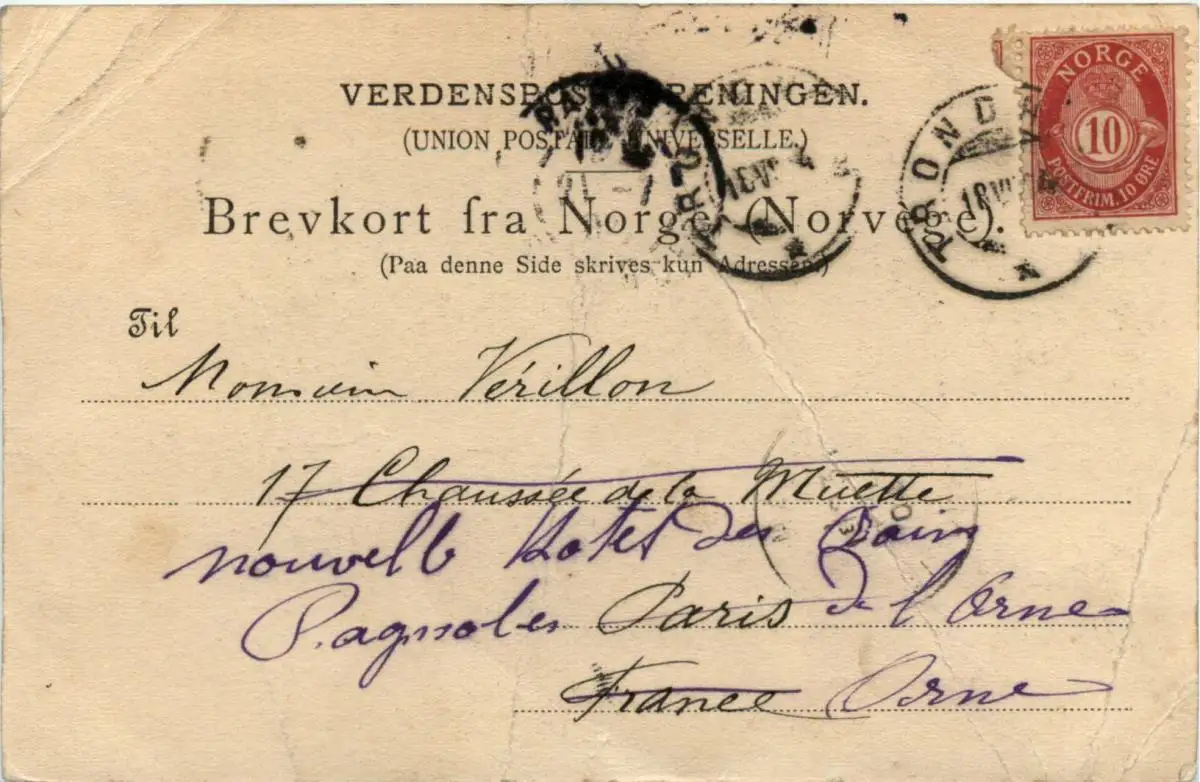 VERDENSPOSTFORENINGEN.
(UNION POSTALE UNIVERSELLE.)
Brevkort fra Norge (Norvège).
(Paa denne Side skrives kun Adressen.)
NORGE
10
POSTFRIM. 10 ØRE
TRONDHJEM
18 VII
PARIS
Til
Monsieur Vérillon
17 Chaussée de la Muette
nouvelle Hotel des Bains
Bagnoles Paris de l'Orne
France Orne